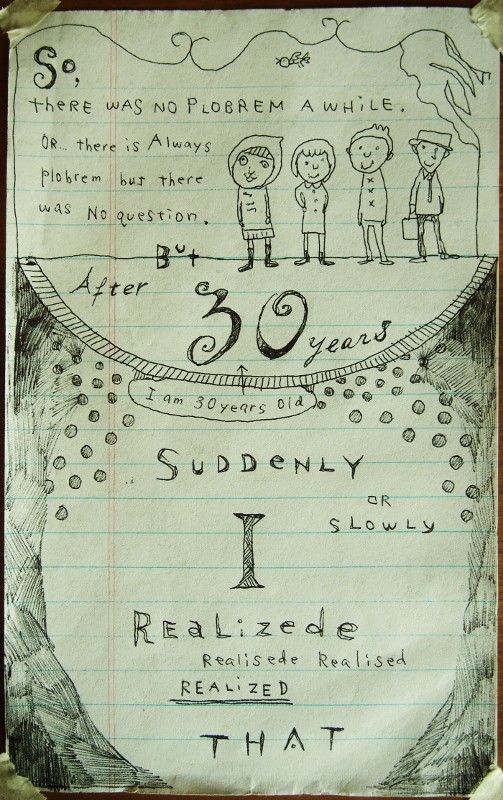 So,
tHERE WAS NO PLOBREM A WHILE.
OR... there is Always
plobrem but there
was No question.
But
After
30 years
I am 30 years old
SUDDENLY
OR
SLOWLY
I
REALizede
Realisede Realised
REALIZED
THAT